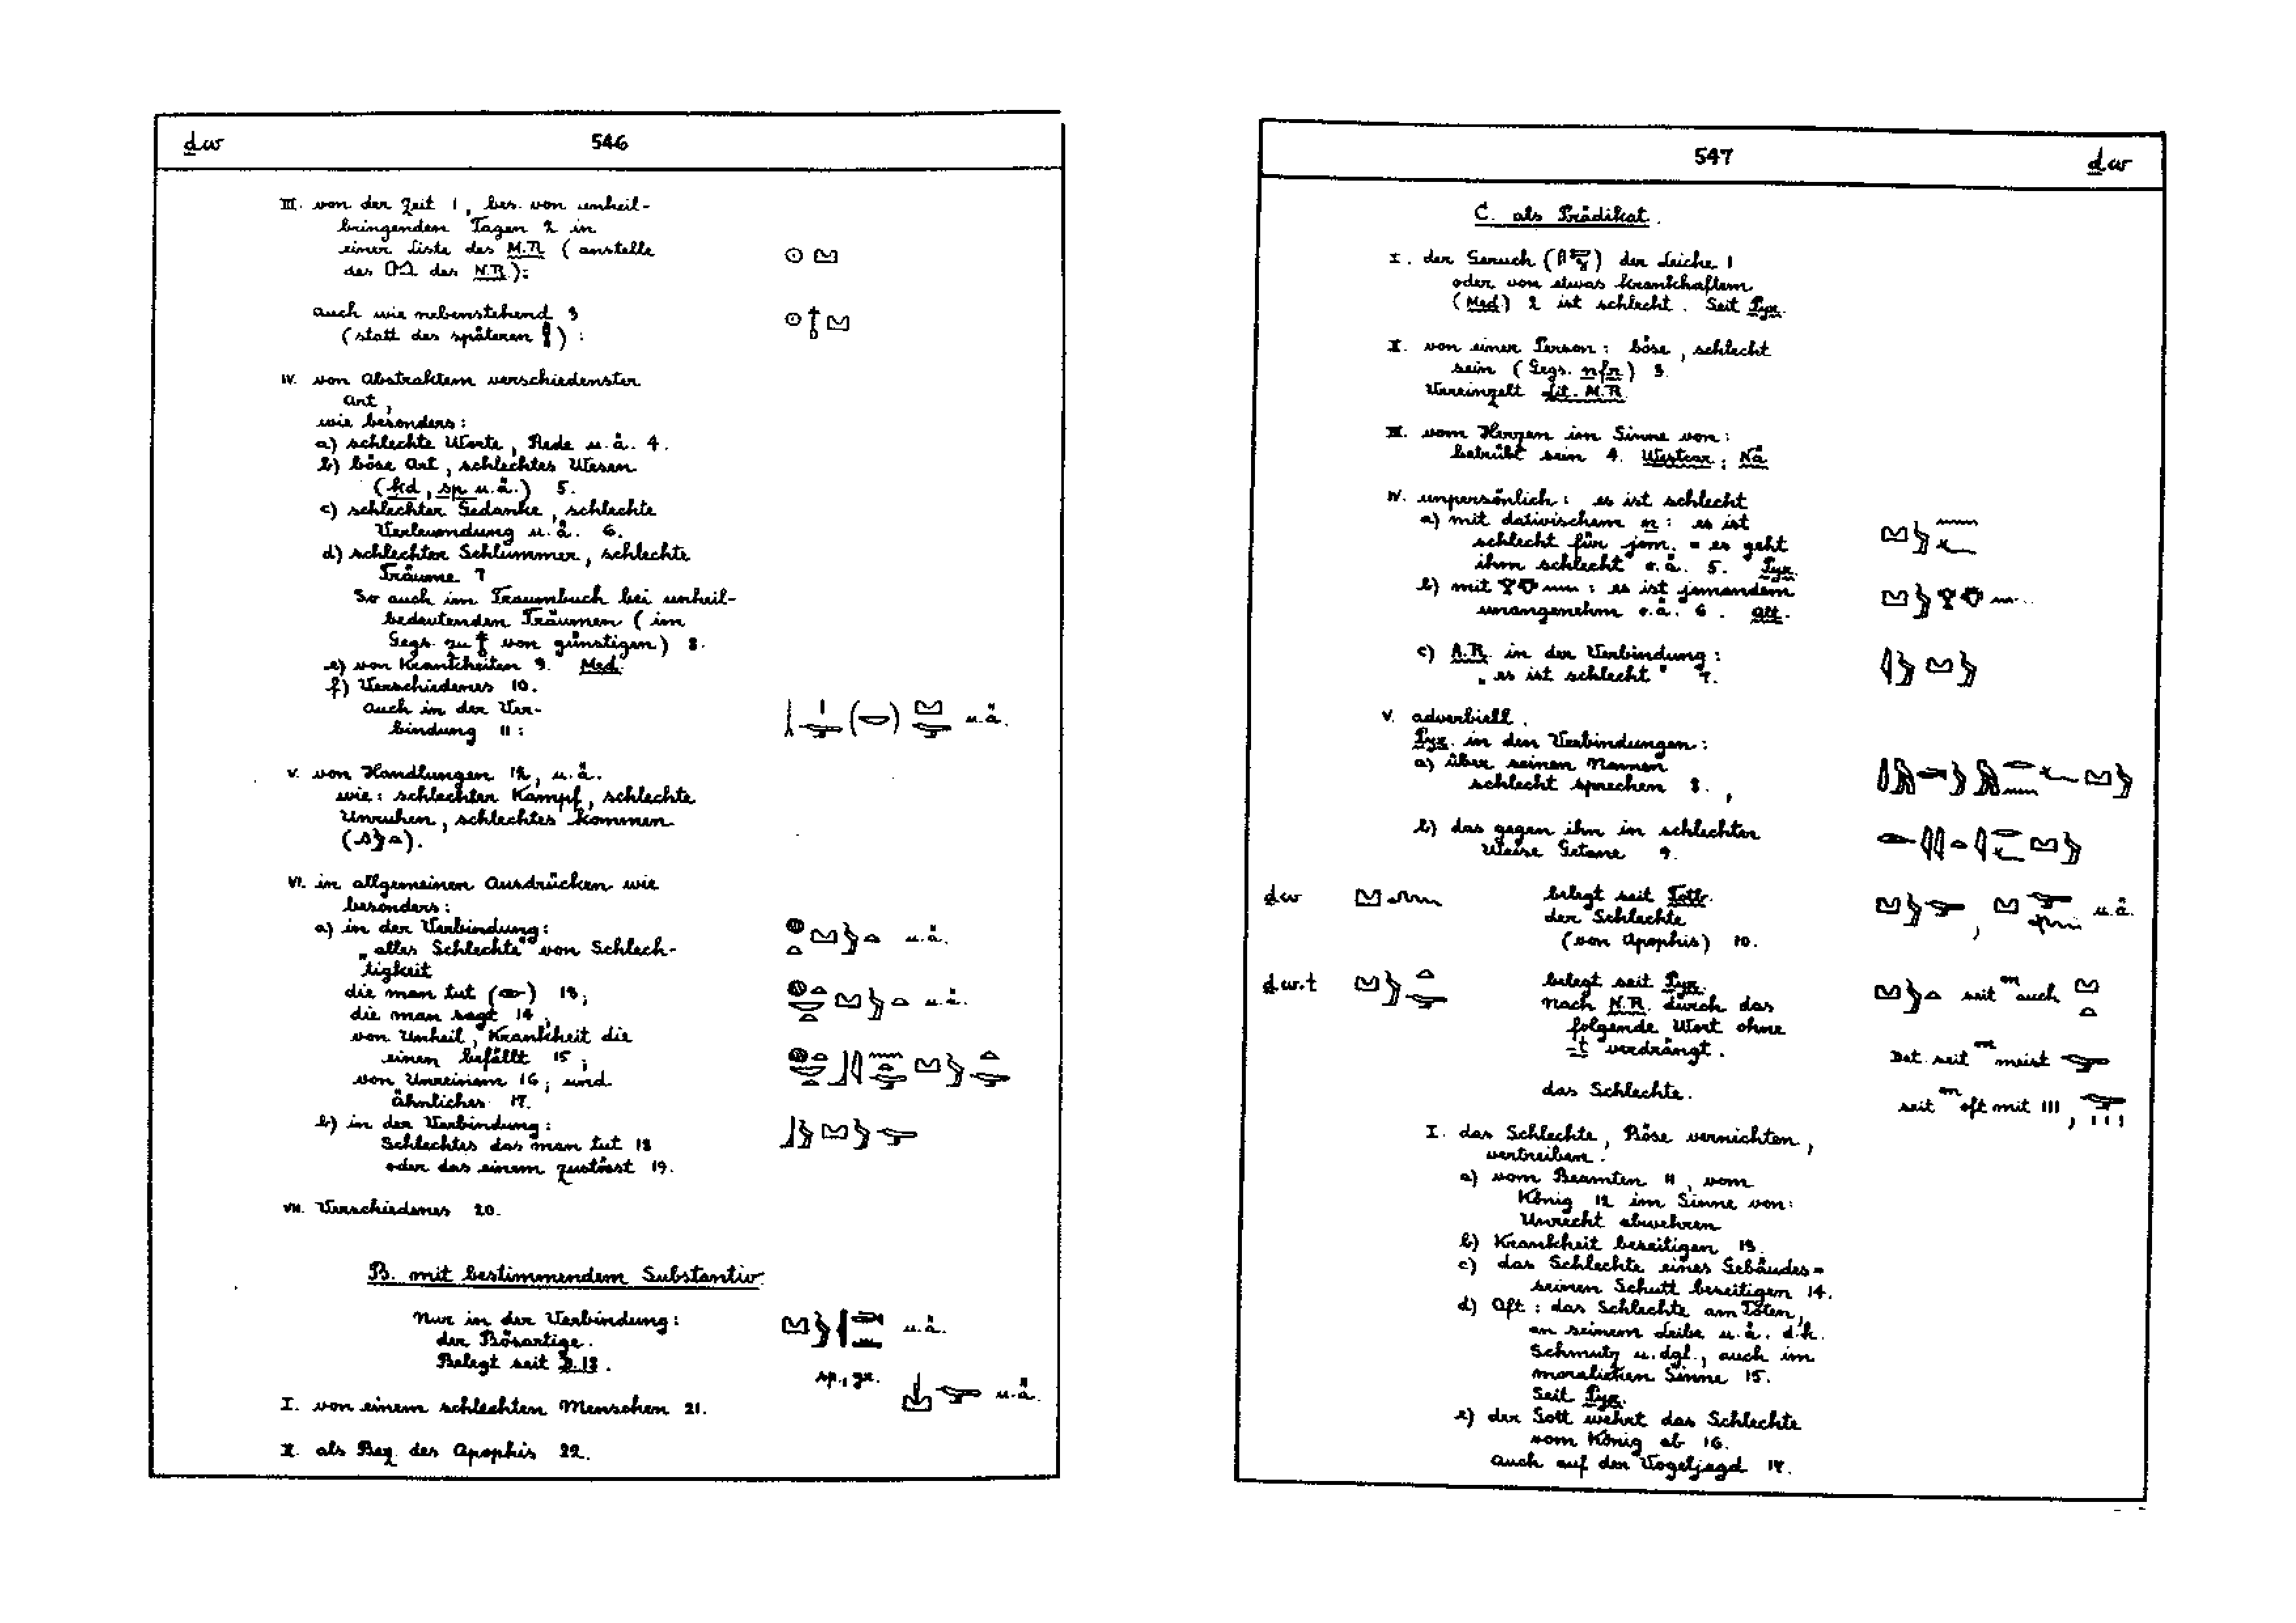 ḏw 546
III. von der Zeit 1, bes. von unheil-
bringenden Tagen 2 in
einer Liste des M.R. (anstelle
des des N.R.):
auch wie nebenstehend 3
(statt des späteren ) :
IV. von Abstraktem verschiedenster
Art,
wie besonders:
a) schlechte Worte, Rede u.ä. 4.
b) böse Art, schlechtes Wesen
(ḳd, sp u.ä.) 5.
c) schlechter Gedanke, schlechte
Verleumdung u.ä. 6.
d) schlechter Schlummer, schlechte
Träume 7
So auch im Traumbuch bei unheil-
bedeutenden Träumen (im
Gegs. zu von günstigen) 8.
e) von Krankheiten 9. Med.
f) Verschiedenes 10.
auch in der Ver-
bindung 11: u.ä.
V. von Handlungen 12, u.ä.
wie: schlechter Kampf, schlechte
Unruhen, schlechtes Kommen
VI. in allgemeinen Ausdrücken wie
besonders:
a) in der Verbindung: u.ä.
„alles Schlechte" von Schlech-
tigkeit
die man tut 13; u.ä.
die man sagt 14,
von Unheil, Krankheit die
einen befällt 15;
von Unreinem 16; und
Ähnliches 17.
b) in der Verbindung:
Schlechtes das man tut 18
oder das einem zustösst 19.
VII. Verschiedenes 20.
B. mit bestimmendem Substantiv.
Nur in der Verbindung: u.ä.
der Bösartige.
Belegt seit D.18.
sp., gr. u.ä.
I. von einem schlechten Menschen 21.
II. als Bez. des Apophis 22.
547 ḏw
C. als Prädikat.
I. der Geruch ( ) der Leiche 1
oder von etwas Krankhaftem
(Med.) 2 ist schlecht. Seit Pyr.
II. von einer Person: böse, schlecht
sein (Gegs. nfr) 3.
Vereinzelt Lit. M.R.
III. vom Herzen im Sinne von:
betrübt sein 4. Westcar; Nä
IV. unpersönlich: es ist schlecht
a) mit dativischem n: es ist
schlecht für jem. = es geht
ihm schlecht o.ä. 5. Pyr.
b) mit : es ist jemandem
unangenehm o.ä. 6. Alt.
c) A.R. in der Verbindung:
„es ist schlecht" 7.
V. adverbiell.
Pyr. in den Verbindungen:
a) über seinen Namen
schlecht sprechen 8.,
b) das gegen ihn in schlechter
Weise Getane 9.
ḏw belegt seit Totb. u.ä.
der Schlechte
(von Apophis) 10.
ḏw.t belegt seit Pyr. seit auch
Nach N.R. durch das
folgende Wort ohne
-t verdrängt. Det. seit meist
das Schlechte. seit oft mit III,
I. das Schlechte, Böse vernichten,
vertreiben.
a) vom Beamten 11, vom
König 12 im Sinne von:
Unrecht abwehren
b) Krankheit beseitigen 13.
c) das Schlechte eines Gebäudes =
seinen Schutt beseitigen 14.
d) Oft: das Schlechte am Toten,
an seinem Leibe u.ä. d.h.
Schmutz u.dgl., auch im
moralischen Sinne 15.
Seit Pyr.
e) der Gott wehrt das Schlechte
vom König ab 16.
Auch auf der Vogeljagd 17.